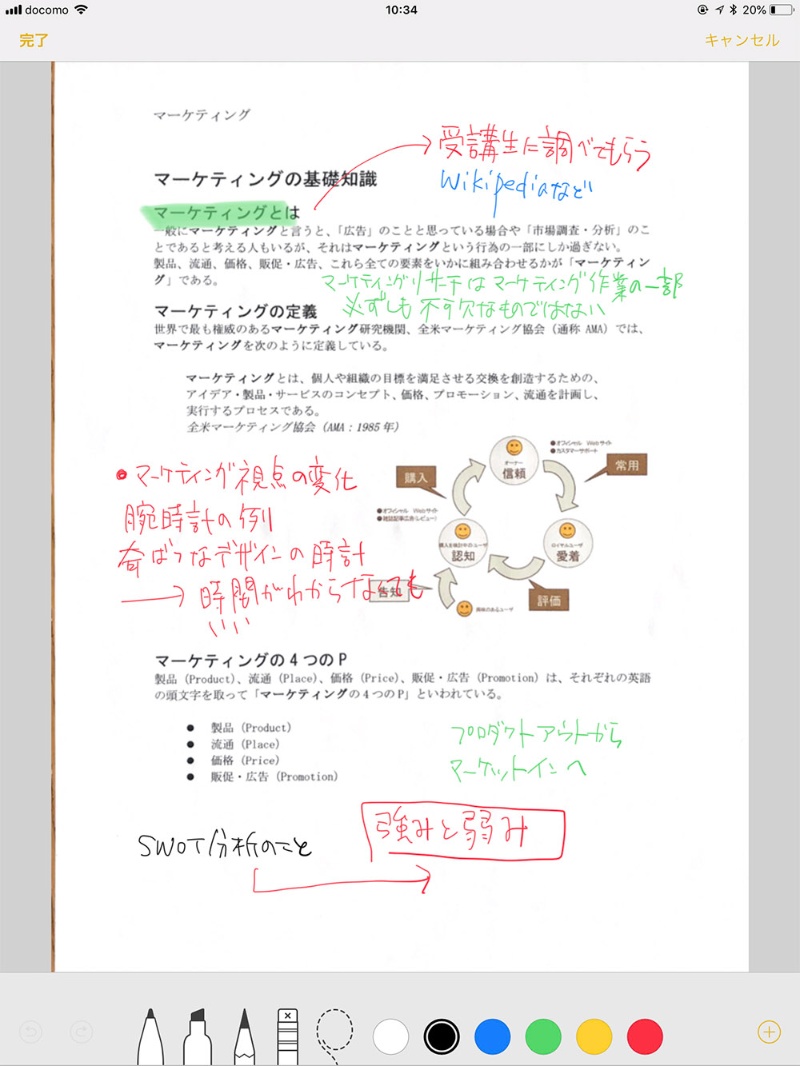 docomo 10:34 20%
完了 キャンセル
マーケティング
受講生に調べてもらう
Wikipediaなど
マーケティングの基礎知識
マーケティングとは
一般にマーケティングと言うと、「広告」のことと思っている場合や「市場調査・分析」のこ
とであると考える人もいるが、それはマーケティングという行為の一部にしか過ぎない。
製品、流通、価格、販促・広告、これら全ての要素をいかに組み合わせるかが「マーケティン
グ」である。
マーケティングリサーチはマーケティング作業の一部
必ずしも不可欠なものではない
マーケティングの定義
世界で最も権威のあるマーケティング研究機関、全米マーケティング協会（通称 AMA）では、
マーケティングを次のように定義している。
マーケティングとは、個人や組織の目標を満足させる交換を創造するための、
アイデア・製品・サービスのコンセプト、価格、プロモーション、流通を計画し、
実行するプロセスである。
全米マーケティング協会（AMA：1985 年）
●マーケティング視点の変化
腕時計の例
奇ばつなデザインの時計
→ 時間がわからなくても
いい
●オフィシャル Webサイト
●カスタマーサポート
オーナー
信頼
常用
購入
●オフィシャル Webサイト
●雑誌記事広告(レビュー)
購入を検討中のユーザ
認知
ロイヤルユーザ
愛着
告知
評価
興味のあるユーザ
マーケティングの４つのＰ
製品（Product）、流通（Place）、価格（Price）、販促・広告（Promotion）は、それぞれの英語
の頭文字を取って「マーケティングの４つのＰ」といわれている。
● 製品（Product）
● 流通（Place）
● 価格（Price）
● 販促・広告（Promotion）
プロダクトアウトから
マーケットインへ
SWOT分析のこと
強みと弱み